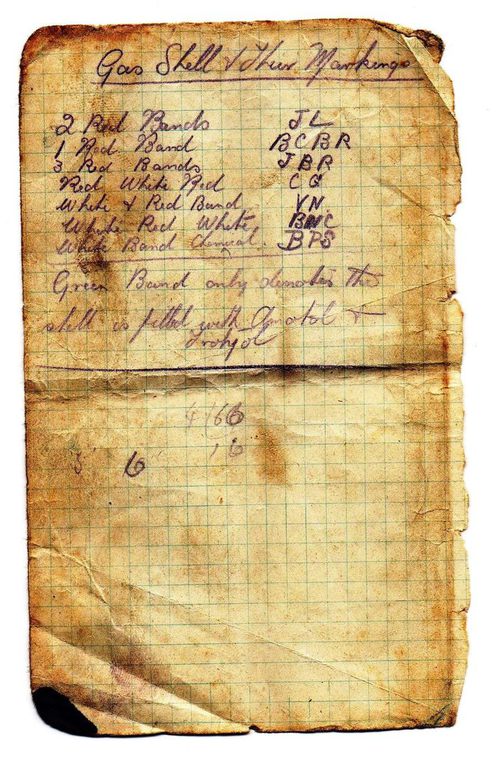 Gas Shell & Their Markings
2 Red Bands JL
1 Red Band BCBR
3 Red Bands JBR
Red White Red CG
White & Red Band VN
White Red White BNC
White Band Chemical BPS
Green Band only denotes the
shell is filled with Amatol &
Trotyl
4 66
16
3 6